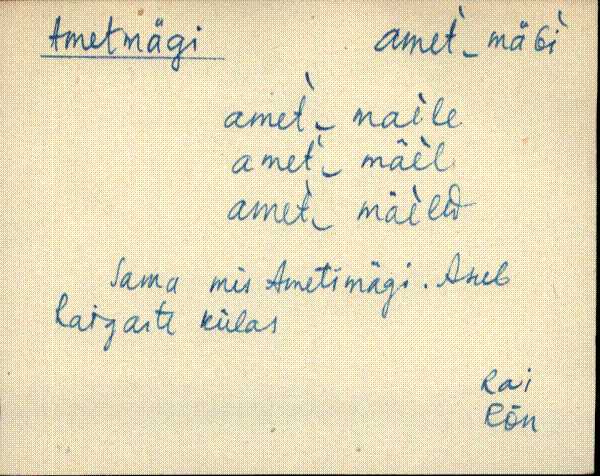 Ametmägi amet̀‿mäGì
amet̀‿maìle
amet̀‿mäèl
amet̀‿mäèld
Sama mis Ametimägi. Asub
Raigaste külas
Rai
Rõn